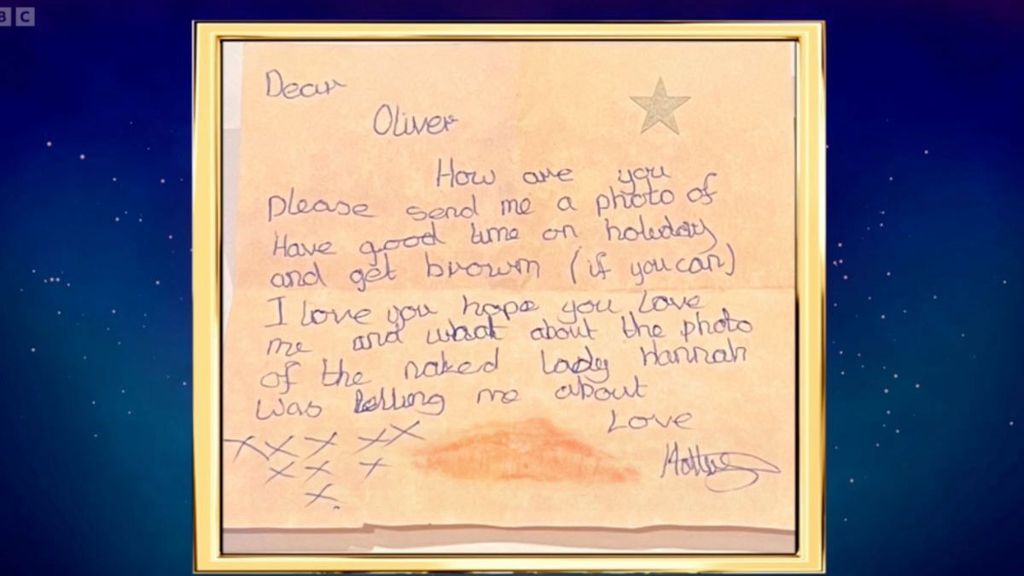 BC
Dear
Oliver
How are you
please send me a photo of
Have good time on holiday
and get brown (if you can)
I love you hope you love
me and what about the photo
of the naked lady Hannah
was telling me about
Love
X X X X X
X X X
X